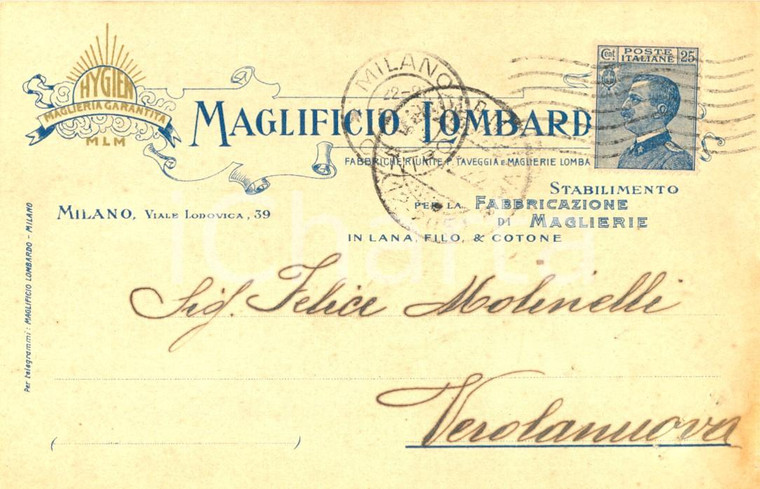 HYGIEN
MAGLIERIA GARANTITA
MLM
Cent. POSTE ITALIANE 25
MILANO
MAGLIFICIO LOMBARD
FABBRICHE RIUNITE P. TAVEGGIA E MAGLIERIE LOMBA
STABILIMENTO
PER LA FABBRICAZIONE
DI MAGLIERIE
IN LANA, FILO, & COTONE
MILANO, VIALE LODOVICA, 39
iCharta
Sig. Felice Molinelli
Verolanuova
Per telegrammi: MAGLIFICIO LOMBARDO - MILANO